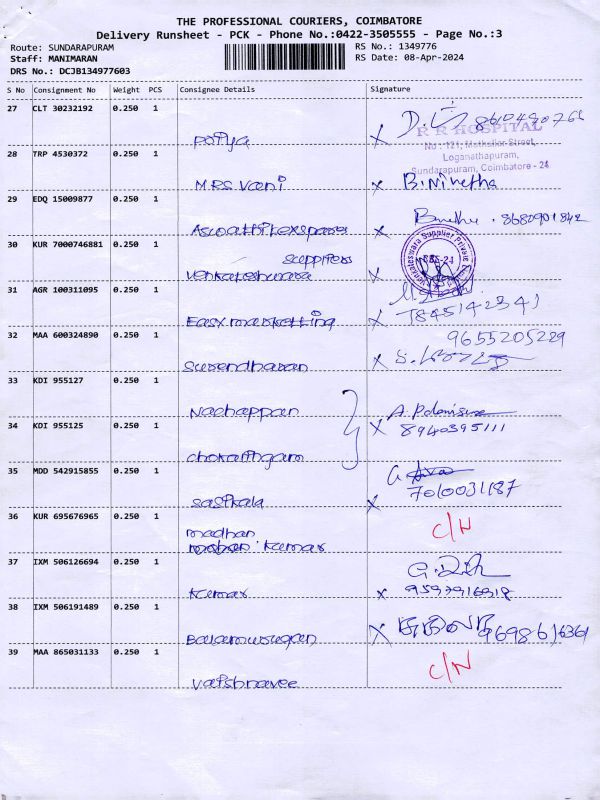 THE PROFESSIONAL COURIERS, COIMBATORE
Delivery Runsheet - PCK - Phone No.:0422-3505555 - Page No.:3
Route: SUNDARAPURAM RS No.: 1349776
Staff: MANIMARAN RS Date: 08-Apr-2024
DRS No.: DCJB134977603
S No Consignment No Weight PCS Consignee Details Signature
27 CLT 30232192 0.250 1
Potiya
R R HOSPITAL
No : 121, Street,
Loganathapuram,
Sundarapuram, Coimbatore - 24
28 TRP 4530372 0.250 1
MRS. Vani x B. Nivetha
29 EDQ 15009877 0.250 1
8680901842
x
30 KUR 7000746881 0.250 1
Venkateshwara x
Venkateswara Supplier Private
31 AGR 100311095 0.250 1
Easy marketting x 7845142341
32 MAA 600324890 0.250 1 9655205229
Surendharan x
33 KDI 955127 0.250 1
Nachappan
34 KDI 955125 0.250 1 x 8940395111
35 MDD 542915855 0.250 1
Sasikala x 7010031187
36 KUR 695676965 0.250 1 C/N
madhan
kumar
37 IXM 506126694 0.250 1
Kumar x
38 IXM 506191489 0.250 1
Balamurugan x
39 MAA 865031133 0.250 1 C/N
Vaishnavee